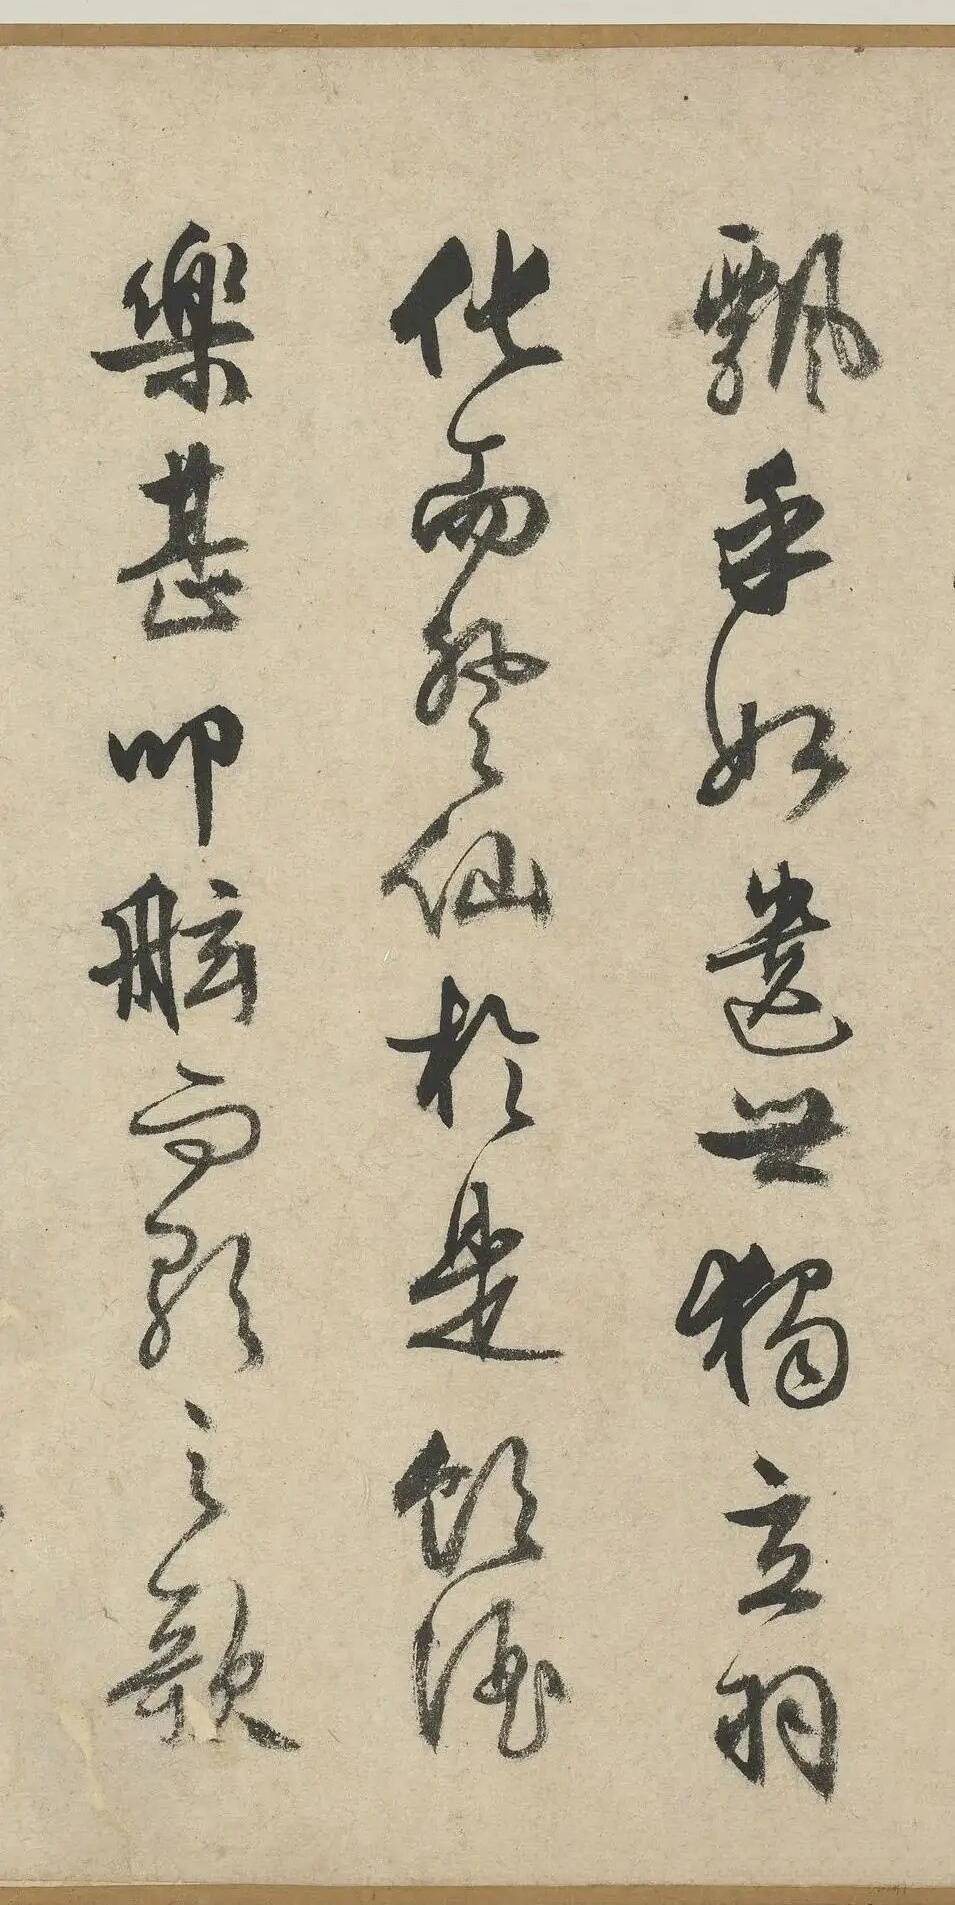 飄乎如遺世獨立羽
化而登仙於是飲酒
樂甚叩舷而歌之歌